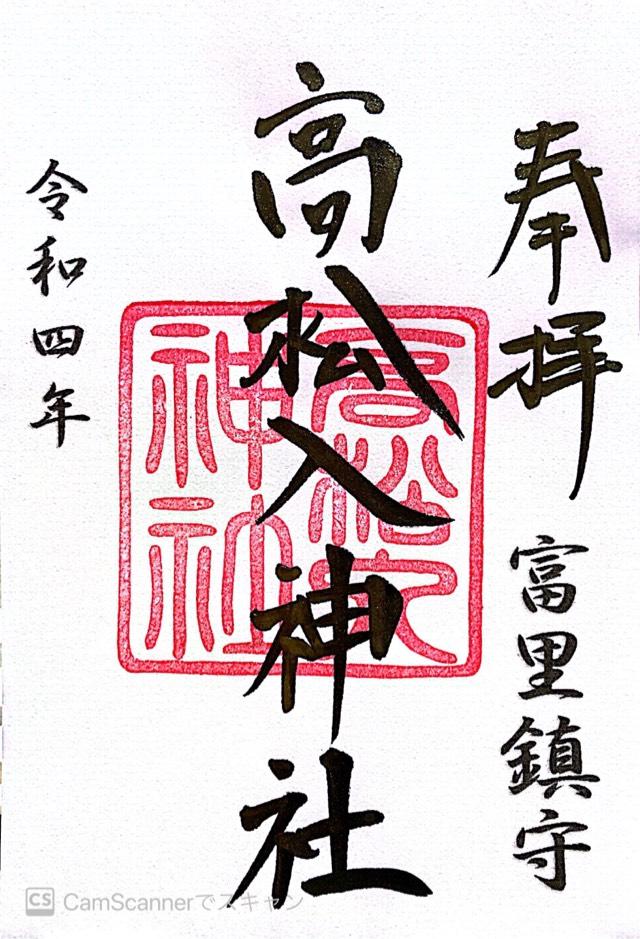 奉拝 富里鎮守
高松入神社
令和四年
高松入
神社
CS CamScannerでスキャン